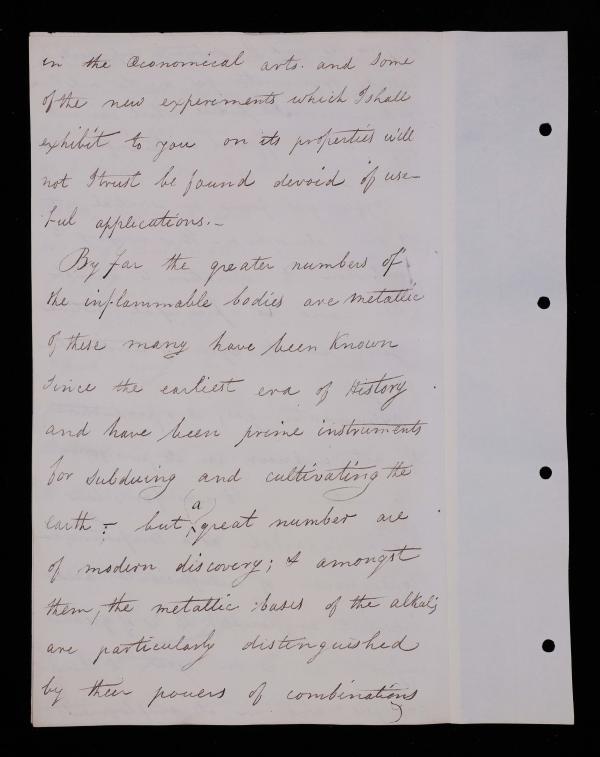 in the Œconomical arts. and Some
of the new experiments which I shall
exhibit to you on its properties will
not I trust be found devoid of use-
ful applications.-
By far the greater numbers of
the inflammable bodies are metallic
of these many have been Known
Since the earliest era of History
and have been prime instruments
for Subduing and cultivating the
earth - but a great number are
of modern discovery; & amongst
them, the metallic bases of the alkalis
are particularly distinguished
by their powers of combinations